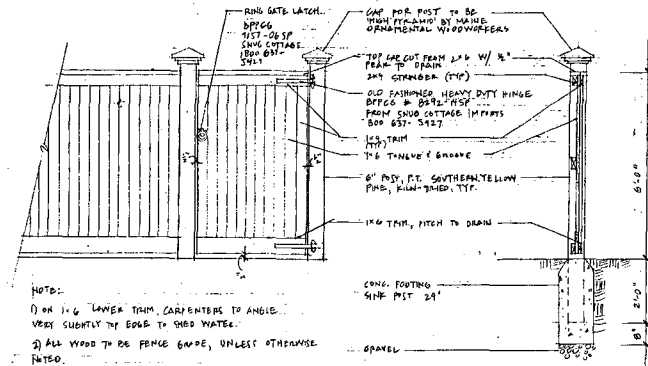 RING GATE LATCH
BPPCG
9157-06SP
SNUG COTTAGE
1800 637-
5427
CAP FOR POST TO BE
'HIGH PYRAMID' BY MAINE
ORNAMENTAL WOODWORKERS
TOP CAP CUT FROM 2×6 W/ ½"
PEAK TO DRAIN
2×4 STRINGER (TYP)
OLD FASHIONED HEAVY DUTY HINGE
BPPCG # 8292-
FROM SNUG COTTAGE IMPORTS
800 637-5427
1×4 TRIM
(TYP)
1×6 TONGUE & GROOVE
6" POST, P.T. SOUTHERN YELLOW
PINE, KILN-DRIED, TYP.
1×6 TRIM, PITCH TO DRAIN
CONC. FOOTING
SINK POST 24"
GRAVEL
6'-0"
2'-0"
8"
NOTE:
1) ON 1×6 LOWER TRIM, CARPENTERS TO ANGLE
VERY SLIGHTLY TOP EDGE TO SHED WATER.
2) ALL WOOD TO BE FENCE GRADE, UNLESS OTHERWISE
NOTED.